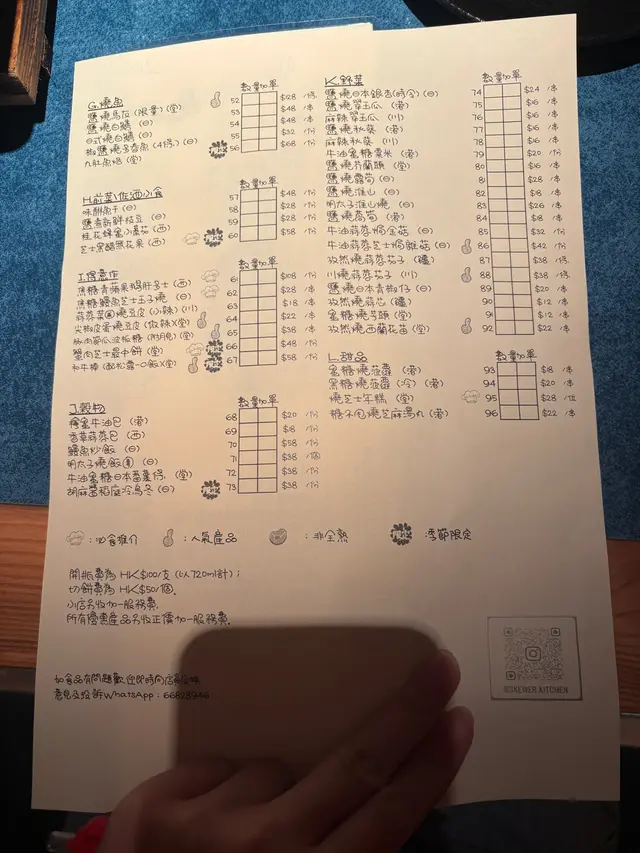 G.燒魚
數量加單
52 $128 /條
鹽燒馬友(限量)(堂) 53 $48 /串
鹽燒白鱔 (日) 54 $48 /串
日式燒白鱔 (日) 55 $32 /份
椒鹽燒多春魚 (4條)(日) 56 $68 /份
(堂)
H.前菜/佐酒小食
味醂魚干 (日) 57 $48 /份
鹽煮新鮮枝豆 (日) 58 $28 /份
桂花蜂蜜小番茄 (西) 59 $28 /份
芝士黑醋無花果 (西) 60 $58 /份
I.得意作
焦糖青蘋果鵝肝多士 (西) 61 $108 /份
焦糖鰻魚芝士玉子燒 (日) 62 $28 /串
燒豆皮 (小辣)(川) 63 $18 /串
尖椒皮蛋燒豆皮 (堂) 64 $22 /串
65 $38 /串
蟹肉芝士最中餅 (堂) 66 $48 /份
67 $58 /份
J.穀物
數量加單
牛油包 (港) 68 $20 /份
香草蒜蓉包 (西) 69 $8 /份
鰻魚炒飯 (日) 70 $58 /份
明太子燒飯團 (日) 71 $38 /個
牛油蜜糖日本蕃薯條 (堂) 72 $38 /份
胡麻醬稻庭冷烏冬 (日) 73 $38 /份
K.野菜
數量加單
鹽燒日本銀杏(時令)(日) 74 $24 /串
鹽燒翠玉瓜 (港) 75 $16 /串
麻辣翠玉瓜 (川) 76 $16 /串
鹽燒秋葵 (港) 77 $16 /串
麻辣秋葵 (川) 78 $16 /串
牛油蜜糖粟米 (港) 79 $20 /份
鹽燒芥蘭頭 (堂) 80 $16 /份
鹽燒露筍 (日) 81 $28 /串
鹽燒淮山 (日) 82 $8 /串
明太子淮山燒 (日) 83 $26 /串
鹽燒萵筍 (港) 84 $8 /串
牛油蒜蓉焗金菇 (日) 85 $32 /份
牛油蒜蓉芝士焗雜菇 (日) 86 $42 /份
孜然燒蒜蓉茄子 (疆) 87 $38 /條
川燒蒜蓉茄子 (川) 88 $38 /條
鹽燒日本青椒仔 (日) 89 $20 /串
孜然燒蒜芯 (疆) 90 $12 /串
蜜糖燒芋頭 (堂) 91 $12 /串
孜然燒西蘭花苗 (川) 92 $22 /串
L.甜品
數量加單
蜜糖燒菠蘿 (港) 93 $18 /串
黑糖燒菠蘿 (冷) (港) 94 $20 /串
燒芝士年糕 (堂) 95 $28 /位
糖不甩燒芝麻湯丸 (港) 96 $22 /串
:叻食推介 :人氣產品 :非全熟 :季節限定
開瓶費為 HK$100/支 (以720ml計);
切餅費為 HK$50/個.
小店另收加一服務費.
所有優惠產品另收正價加一服務費.
如食品有問題歡迎即時向店員反映
意見及投訴WhatsApp : 66828946
KITCHEN